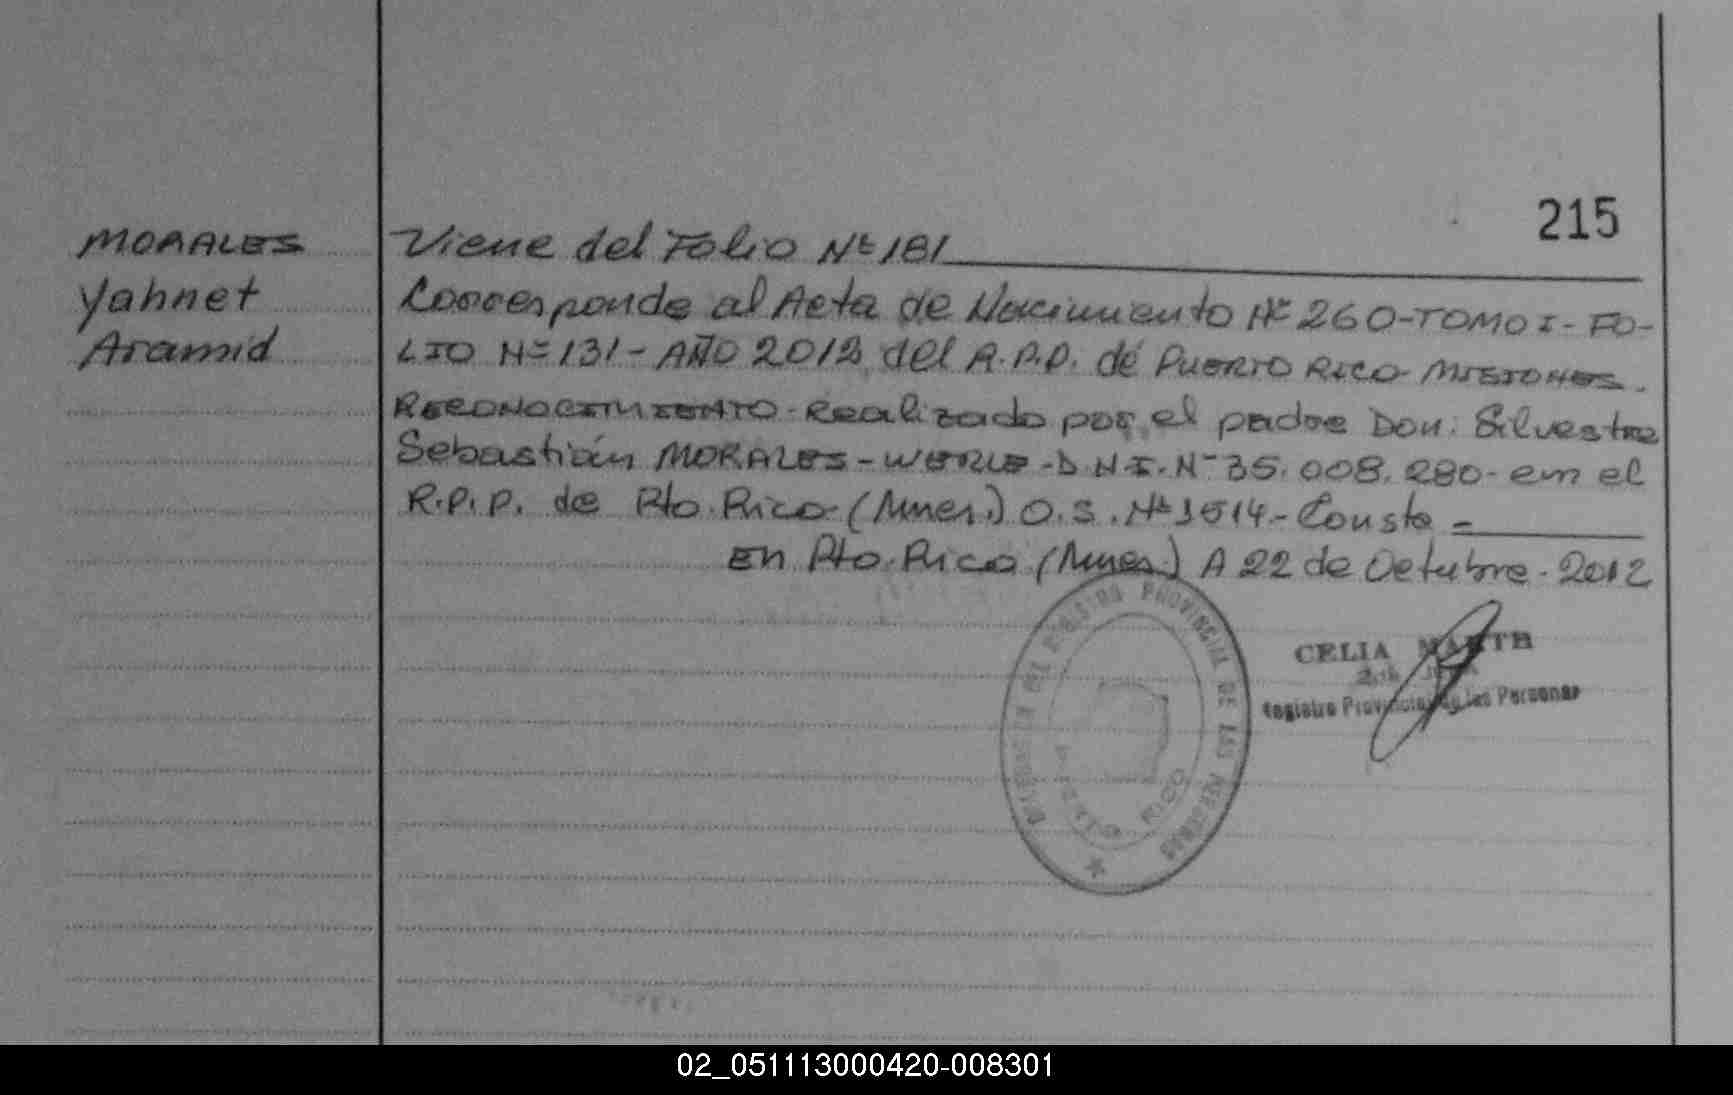 215
MORALES
Yahnet
Aramid
Viene del Folio Nº 181
Corresponde al Acta de Nacimiento Nº 260-TOMO I-FO-
LIO Nº 131-AÑO 2012 del R.P.P. de PUERTO RICO MISIONES.
RECONOCIMIENTO-Realizado por el padre Don: Silvestre
Sebastián MORALES-WERLE-D.N.I.Nº35.008.280-en el
R.P.P. de Pto. Rico (Mnes.) O.S. Nº 1514-Consta=
En Pto. Rico (Mnes.) A 22 de Octubre-2012
REGISTRO PROVINCIAL DE LAS PERSONAS
PUERTO RICO
CELIA
Registro Provincial de las Personas
02_051113000420-008301